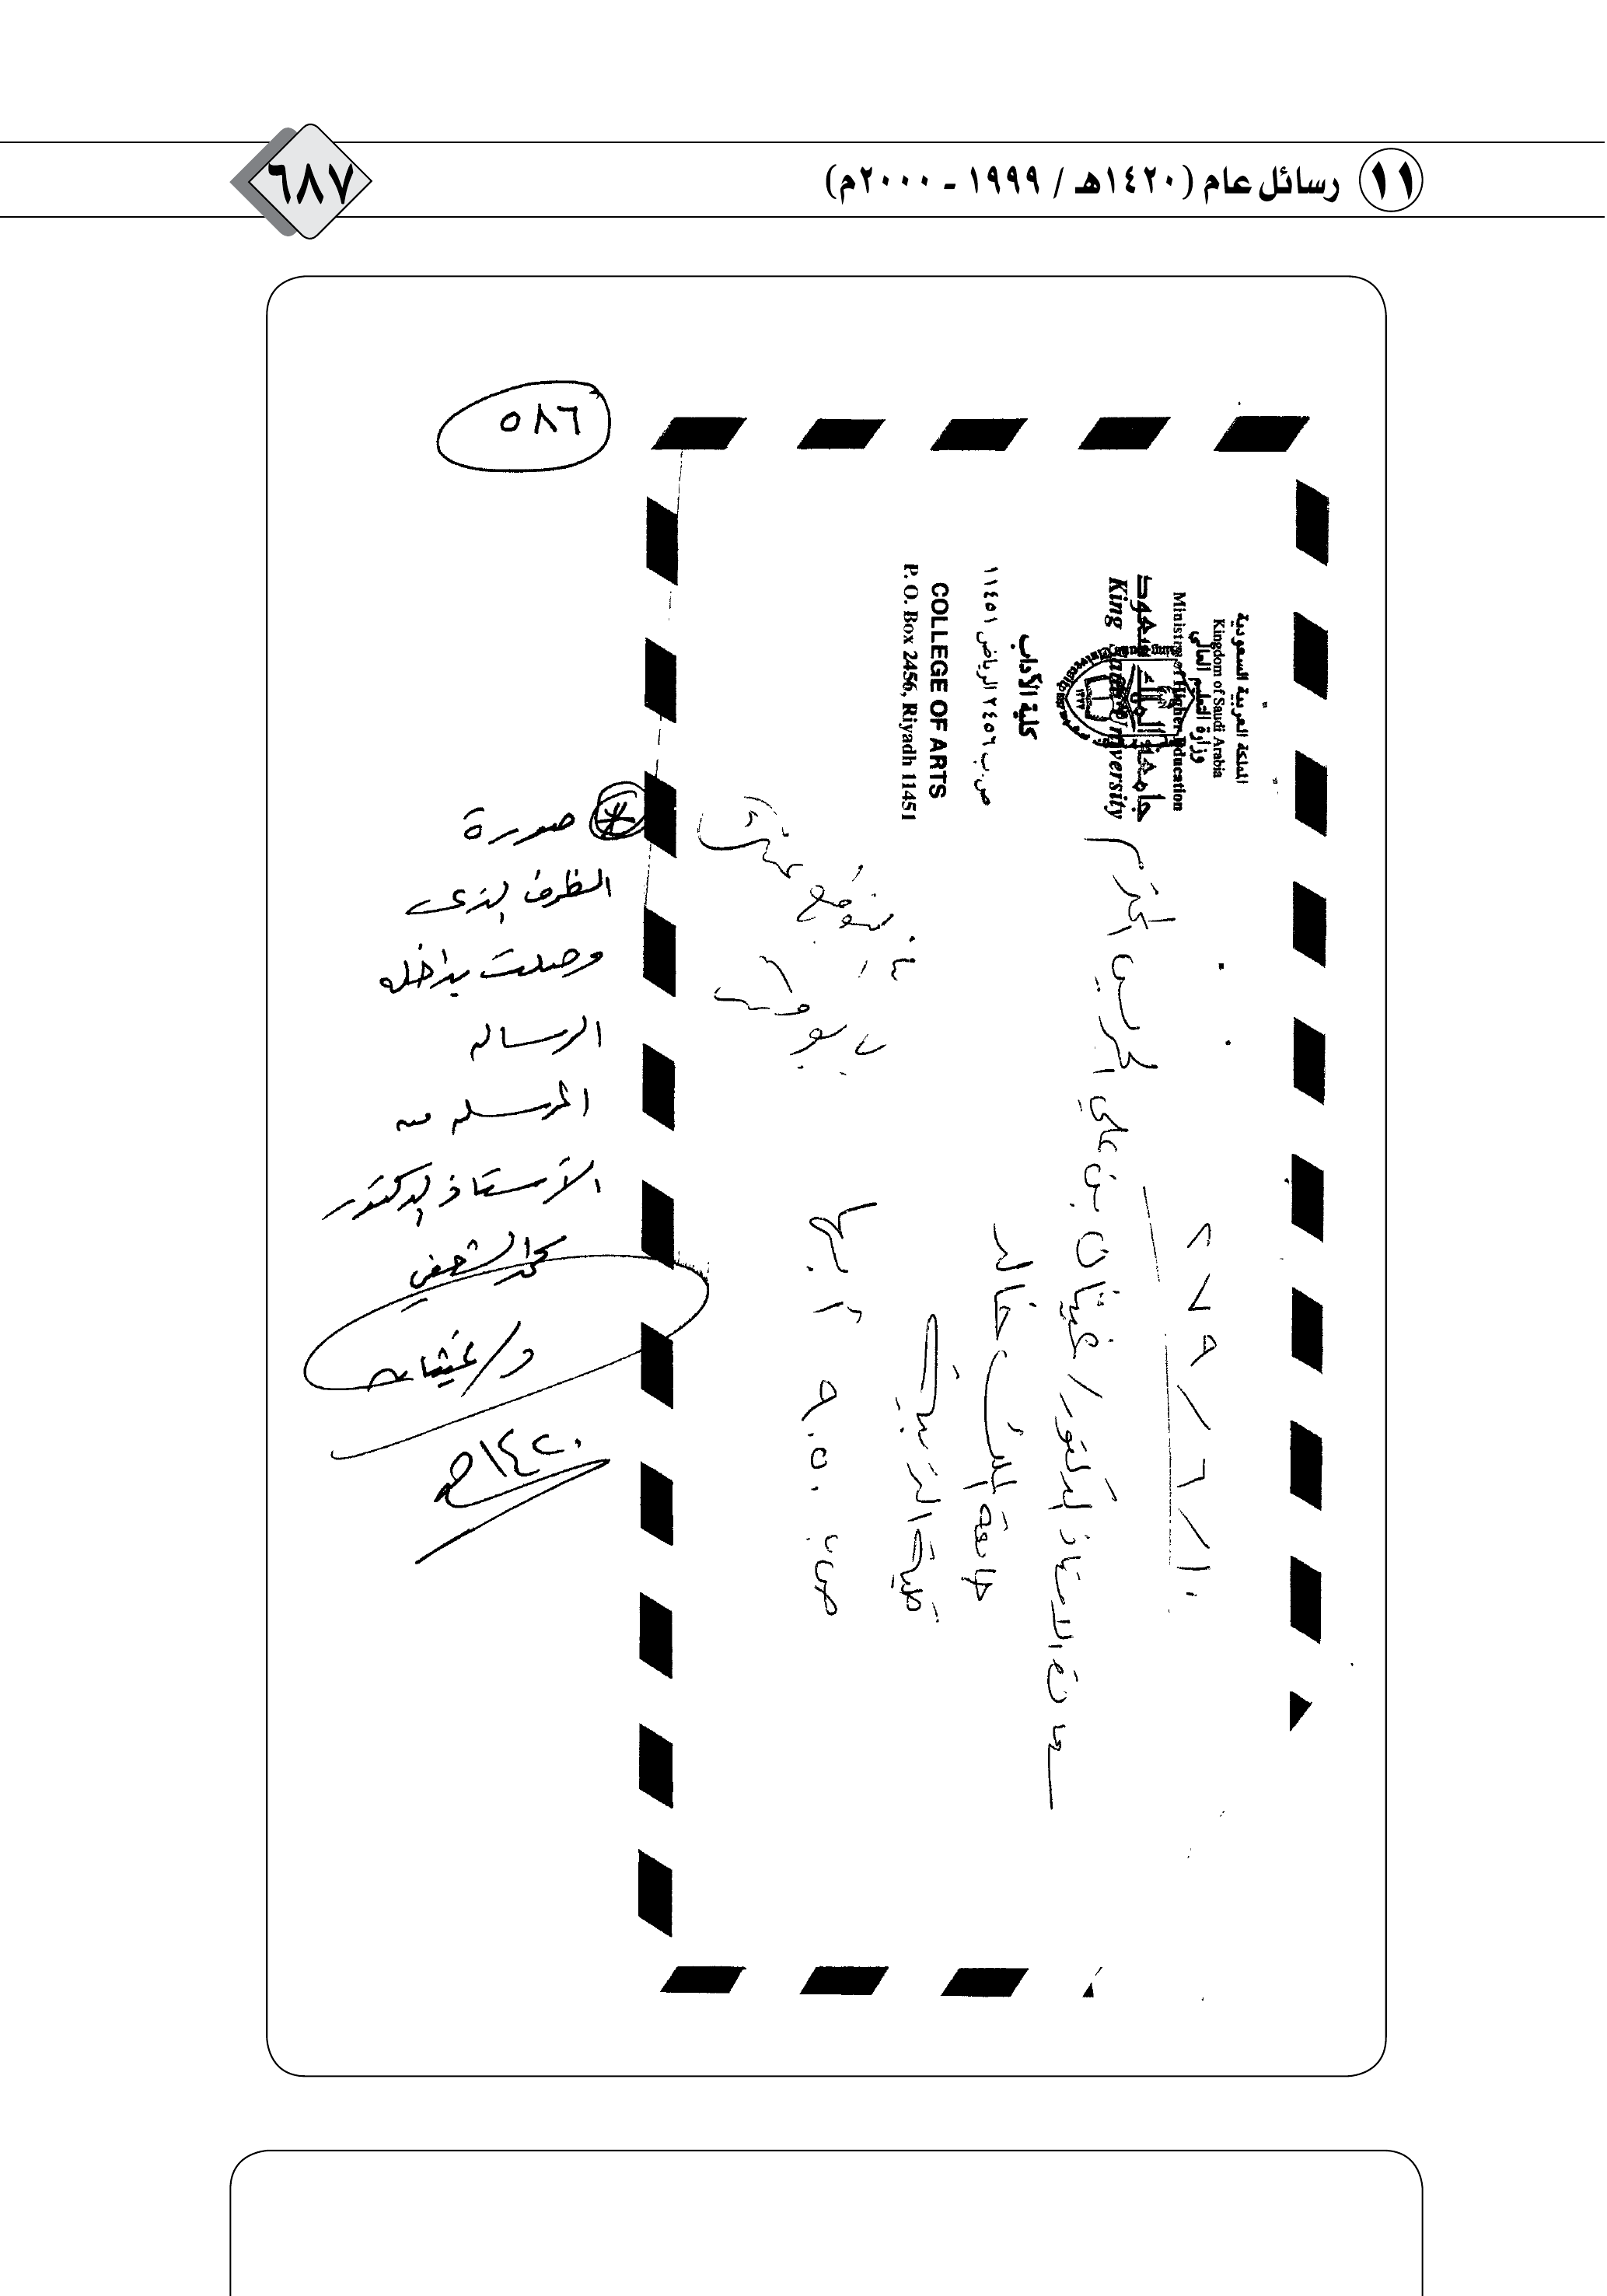 ١١ رسائل عام (١٤٢٠هـ / ١٩٩٩ - ٢٠٠٠م)
٦٨٧
٥٨٦
المملكة العربية السعودية
Kingdom of Saudi Arabia
وزارة التعليم العالي
Ministry of Higher Education
جامعة الملك سعود
King Saud University
كلية الآداب
ص.ب ٢٤٥٦ الرياض ١١٤٥١
COLLEGE OF ARTS
P. O. Box 2456, Riyadh 11451
سعادة الاستاذ الدكتور / غيثان بن علي الجريس المحترم
جامعة الملك خالد
كلية التربية
ص.ب ٩٠٥٠ أبها
* صورة
الظرف الذي
وصلت بداخله
الرسالة
المرسلة من
الأستاذ الدكتور
محمد الشعفي
د/ غيثان
١٤٢٠هـ